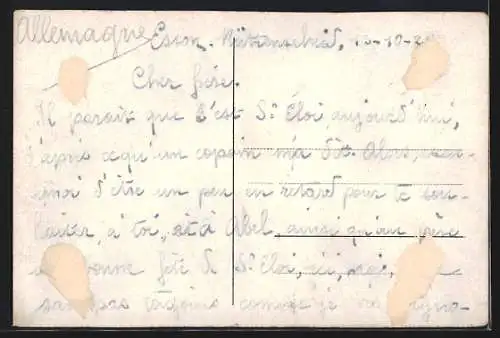 Allemagne Essen. 10-10-2
Cher frère.
Il parait que c'est St Éloi aujourd'hui,
d'après ce qu'un copain m'a dit. Alors, excu-
moi d'être un peu en retard pour te sou-
haiter, à toi, et à Abel, ainsi qu'au père
bonne fête de St Eloi, ici, moi,
sais pas toujours comme je